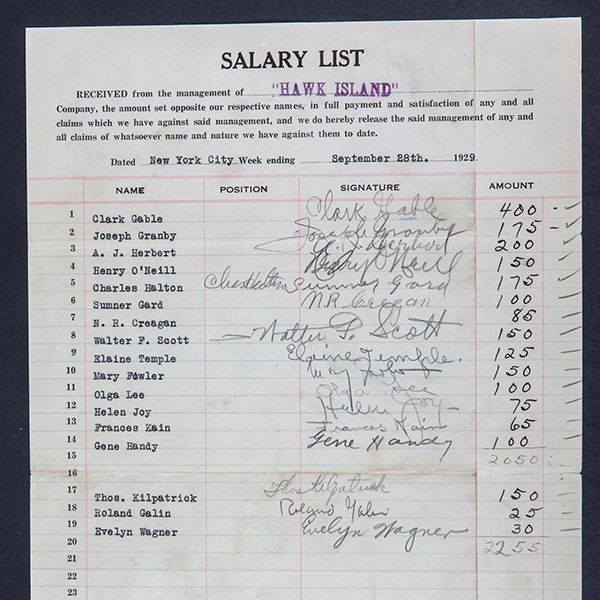 SALARY LIST
RECEIVED from the management of "HAWK ISLAND"
Company, the amount set opposite our respective names, in full payment and satisfaction of any and all
claims which we have against said management, and we do hereby release the said management of any and
all claims of whatsoever name and nature we have against them to date.
Dated New York City Week ending September 28th. 1929
NAME POSITION SIGNATURE AMOUNT
1 Clark Gable Clark Gable 400
2 Joseph Granby Joseph Granby 175
3 A. J. Herbert A. J. Herbert 200
4 Henry O'Neill Henry O'Neill 150
5 Charles Halton Chas Halton 175
6 Sumner Gard Sumner Gard 100
7 N. R. Creagan N.R. Creagan 85
8 Walter F. Scott Walter F. Scott 150
9 Elaine Temple Elaine Temple. 125
10 Mary Fowler Mary Fowler 150
11 Olga Lee Olga Lee 100
12 Helen Joy Helen Joy 75
13 Frances Kain Frances Kain 65
14 Gene Handy Gene Handy 100
15 2050
16
17 Thos. Kilpatrick Thos Kilpatrick 150
18 Roland Galin Roland Galin 25
19 Evelyn Wagner Evelyn Wagner 30
20 2255
21
22
23